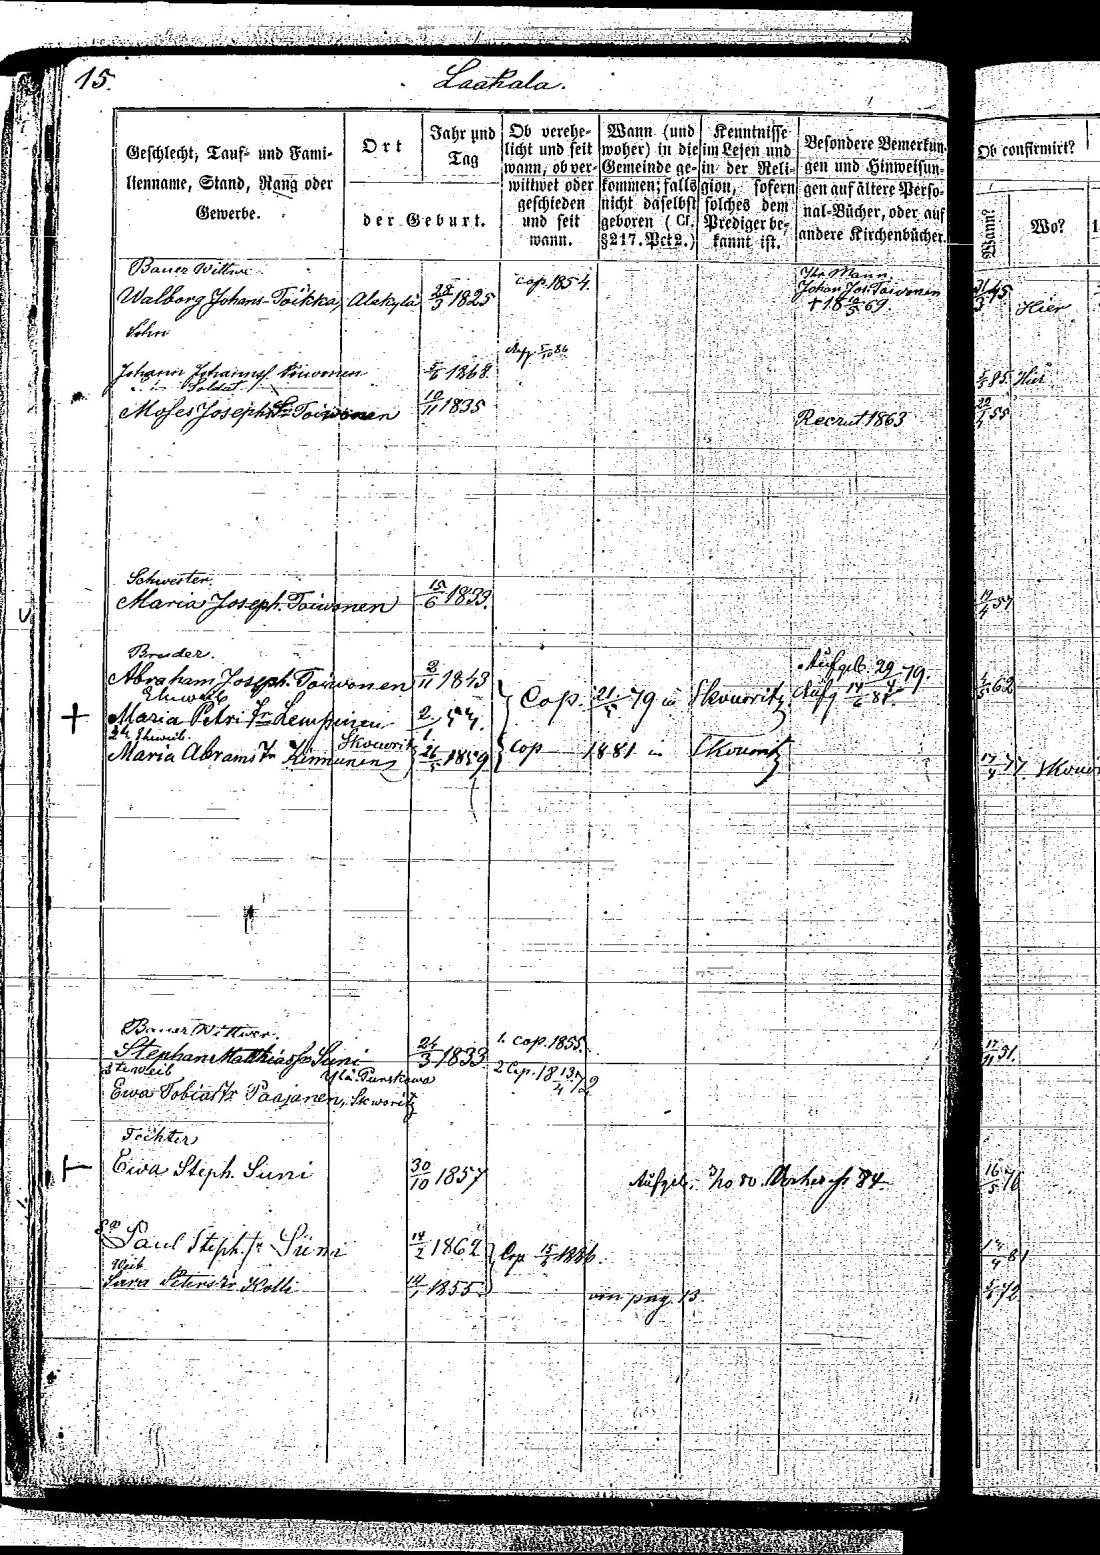 15.
Laakala.
Geschlecht, Tauf- und Fami-
lienname, Stand, Rang oder
Gewerbe.
Ort
Jahr und
Tag
der Geburt.
Ob verehe-
licht und seit
wann, ob ver-
wittwet oder
geschieden
und seit
wann.
Wann (und
woher) in die
Gemeinde ge-
kommen; falls
nicht daselbst
geboren (Cf.
§217. Pct 2.)
Kenntnisse
im Lesen und
in der Reli-
gion, sofern
solches dem
Prediger be-
kannt ist.
Besondere Bemerkun-
gen und Hinweisun-
gen auf ältere Perso-
nal-Bücher, oder auf
andere Kirchenbücher.
Ob confirmirt?
Wann?
Wo?
Bauer Wittwe
Walborg Johans- Toikka, 28/3 1825 cop. 1854.
Ihr Mann
Johan Jos. Toiwonen
† 18 /5 69.
45 Hier
Sohn
Johann Johanns Toiwonen 1868 85 Hier
Soldat
Moses Josephs Toiwonen 10/11 1835 Recrut 1863 55
Schwester.
Maria Joseph. Toiwonen 15/6 1833. 57
Bruder.
Abraham Joseph. Toiwonen 2/11 1843 Aufgeb. 29/4 79. 62
Eheweib
† Maria Petri Lempinen 2/1 54. Cop. 21/5 79 in Skworitz Aufg 14/6 81.
2te Eheweib.
Maria Abrams Kinnunen Skworitz 1859 Cop 1881 in Skworitz 77
Bauer Wittwer.
Stephan Matthias Suni 24/3 1833 1. cop. 1855. 51
2 Eheweib
Ewa Tobias Paajanen, Skworitz 2 Cop. 18 /4 72
Tochter
Ewa Steph. Suni 30/10 1857 Aufgeb. 84 16/5 76
Paul Steph. Suni 14/2 1862 Cop. 1886. 81
Weib
Sara Peters Kolli 1855 von pag. 13 72